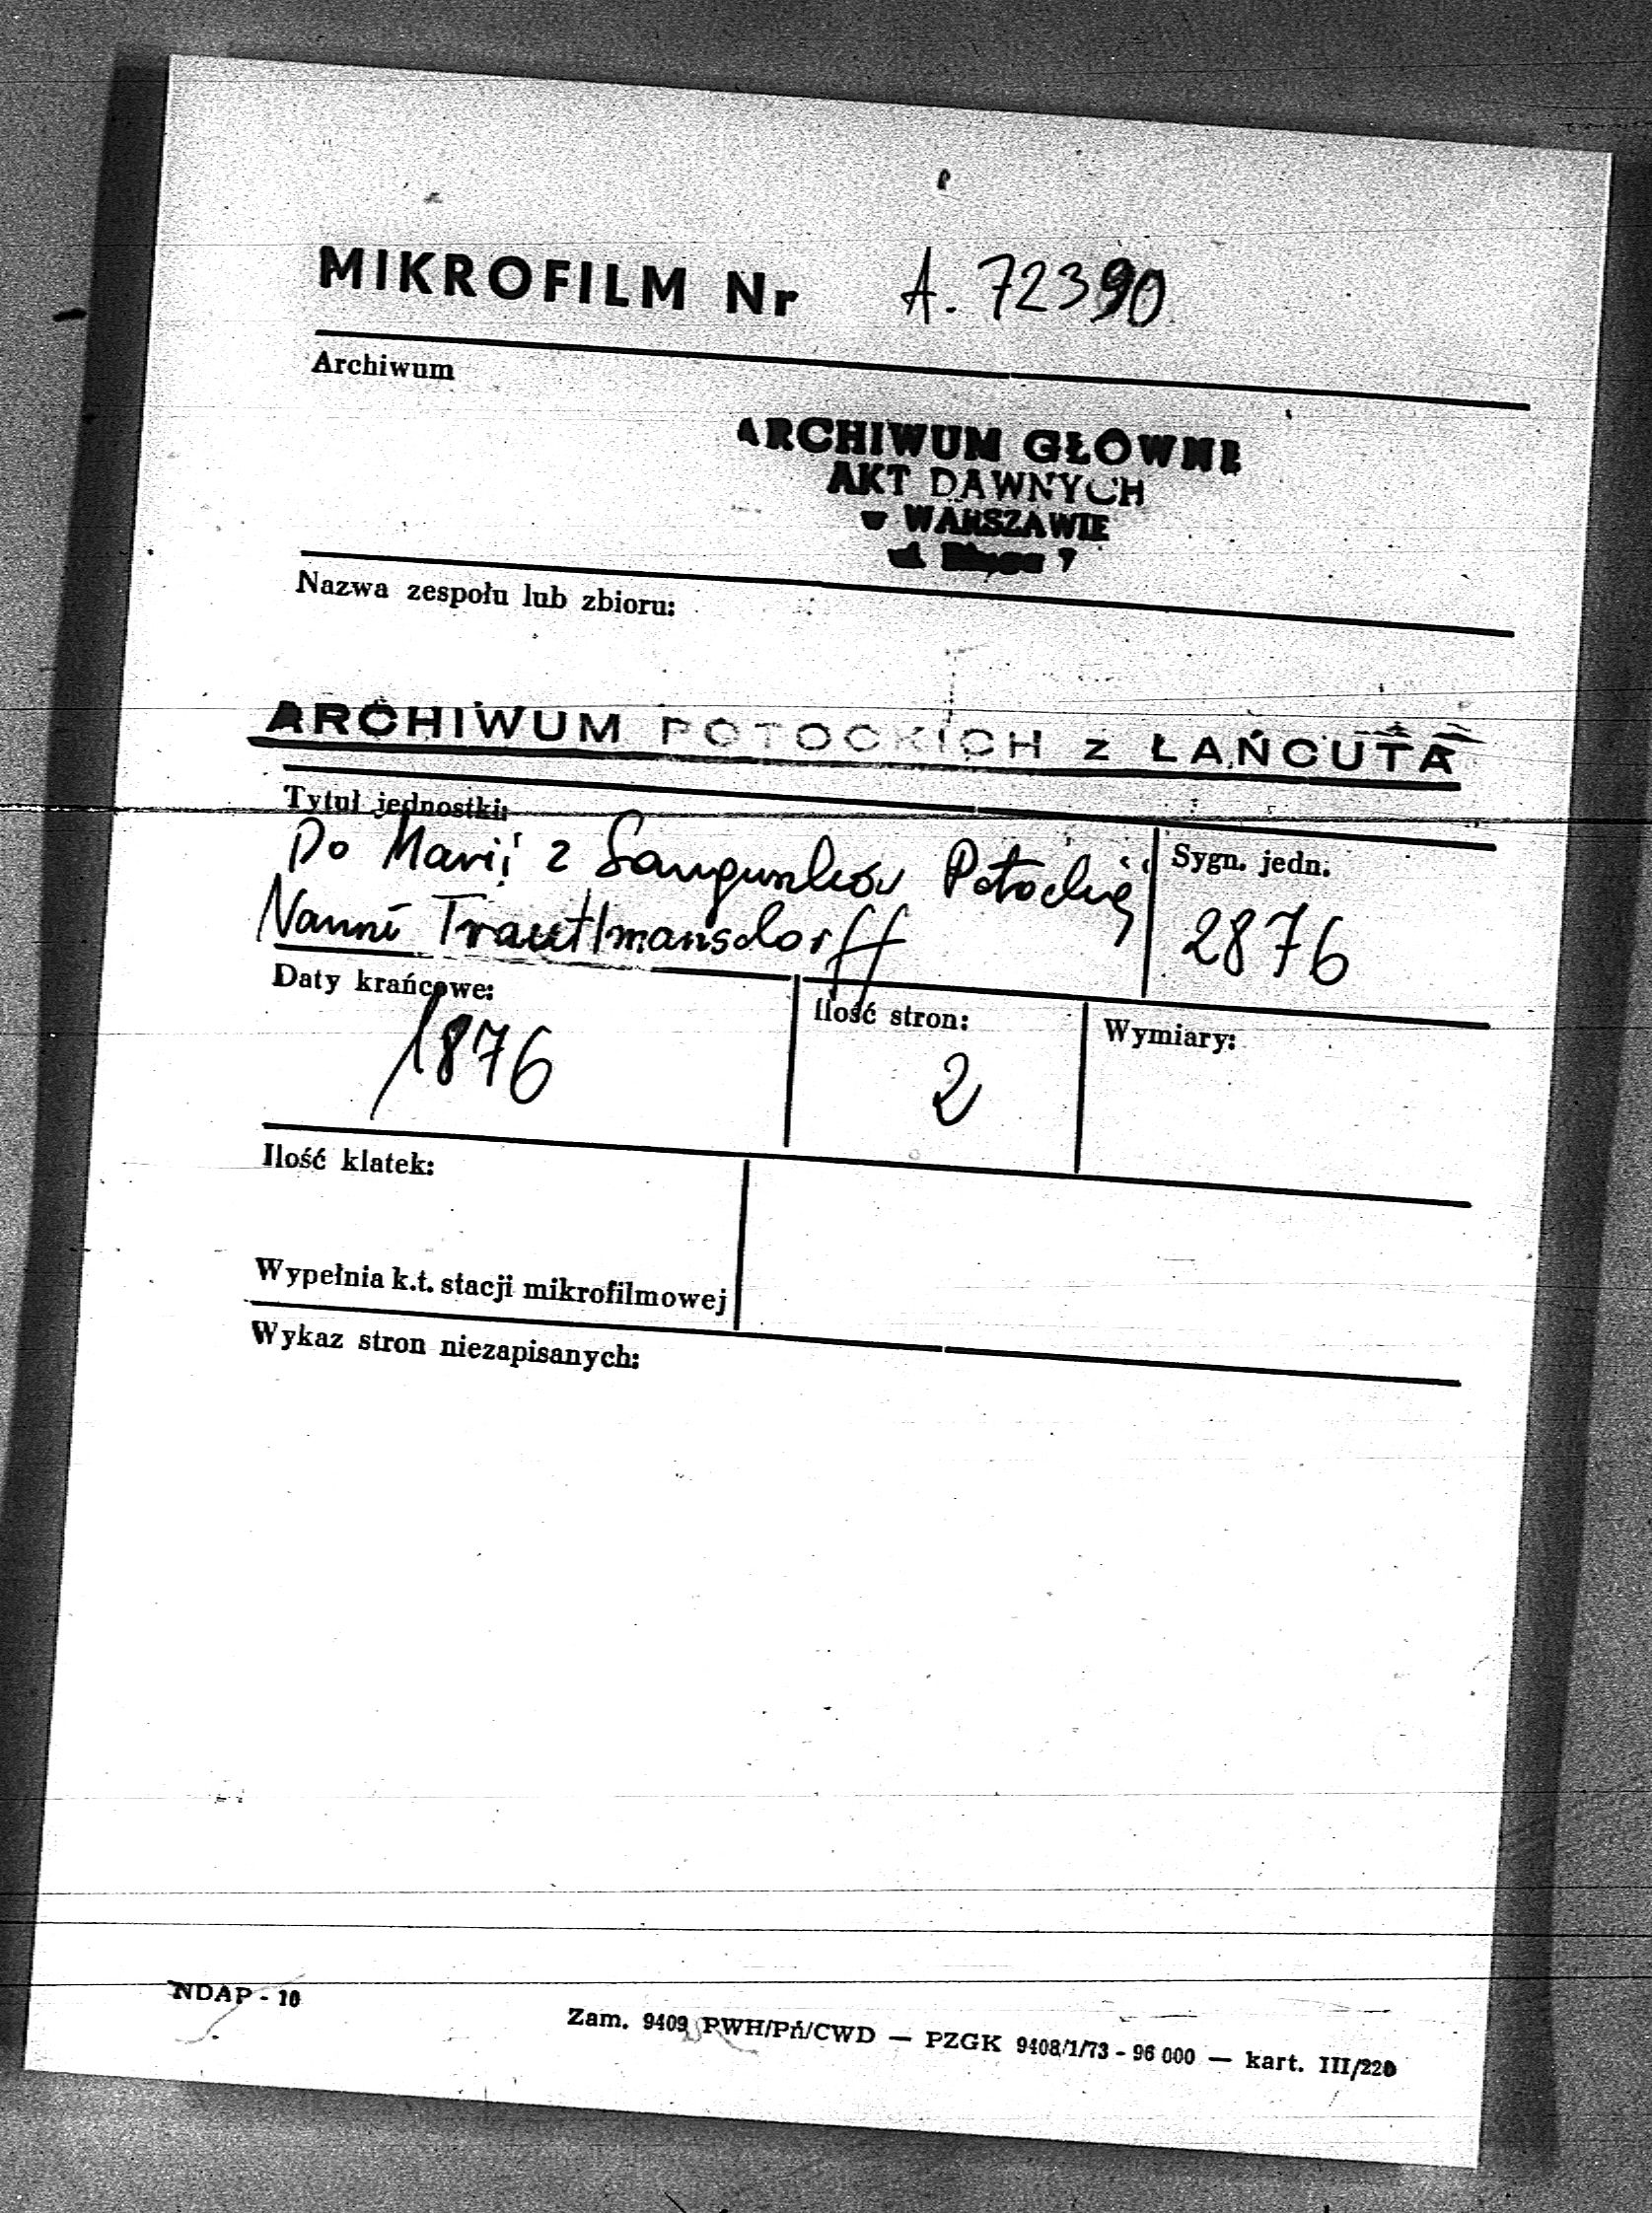 MIKROFILM Nr A. 72390
Archiwum
ARCHIWUM GŁÓWNE
AKT DAWNYCH
w WARSZAWIE
ul. Długa 7
Nazwa zespołu lub zbioru:
ARCHIWUM POTOCKICH z ŁAŃCUTA
Tytuł jednostki:
Do Marii z Sanguszków Potockiej
Nanni Trauttmansdorff
Sygn. jedn.
2876
Daty krańcowe:
1876
Ilość stron:
2
Wymiary:
Ilość klatek:
Wypełnia k.t. stacji mikrofilmowej
Wykaz stron niezapisanych:
NDAP - 10
Zam. 9409 PWH/Pń/CWD — PZGK 9408/1/73 - 96 000 — kart. III/220